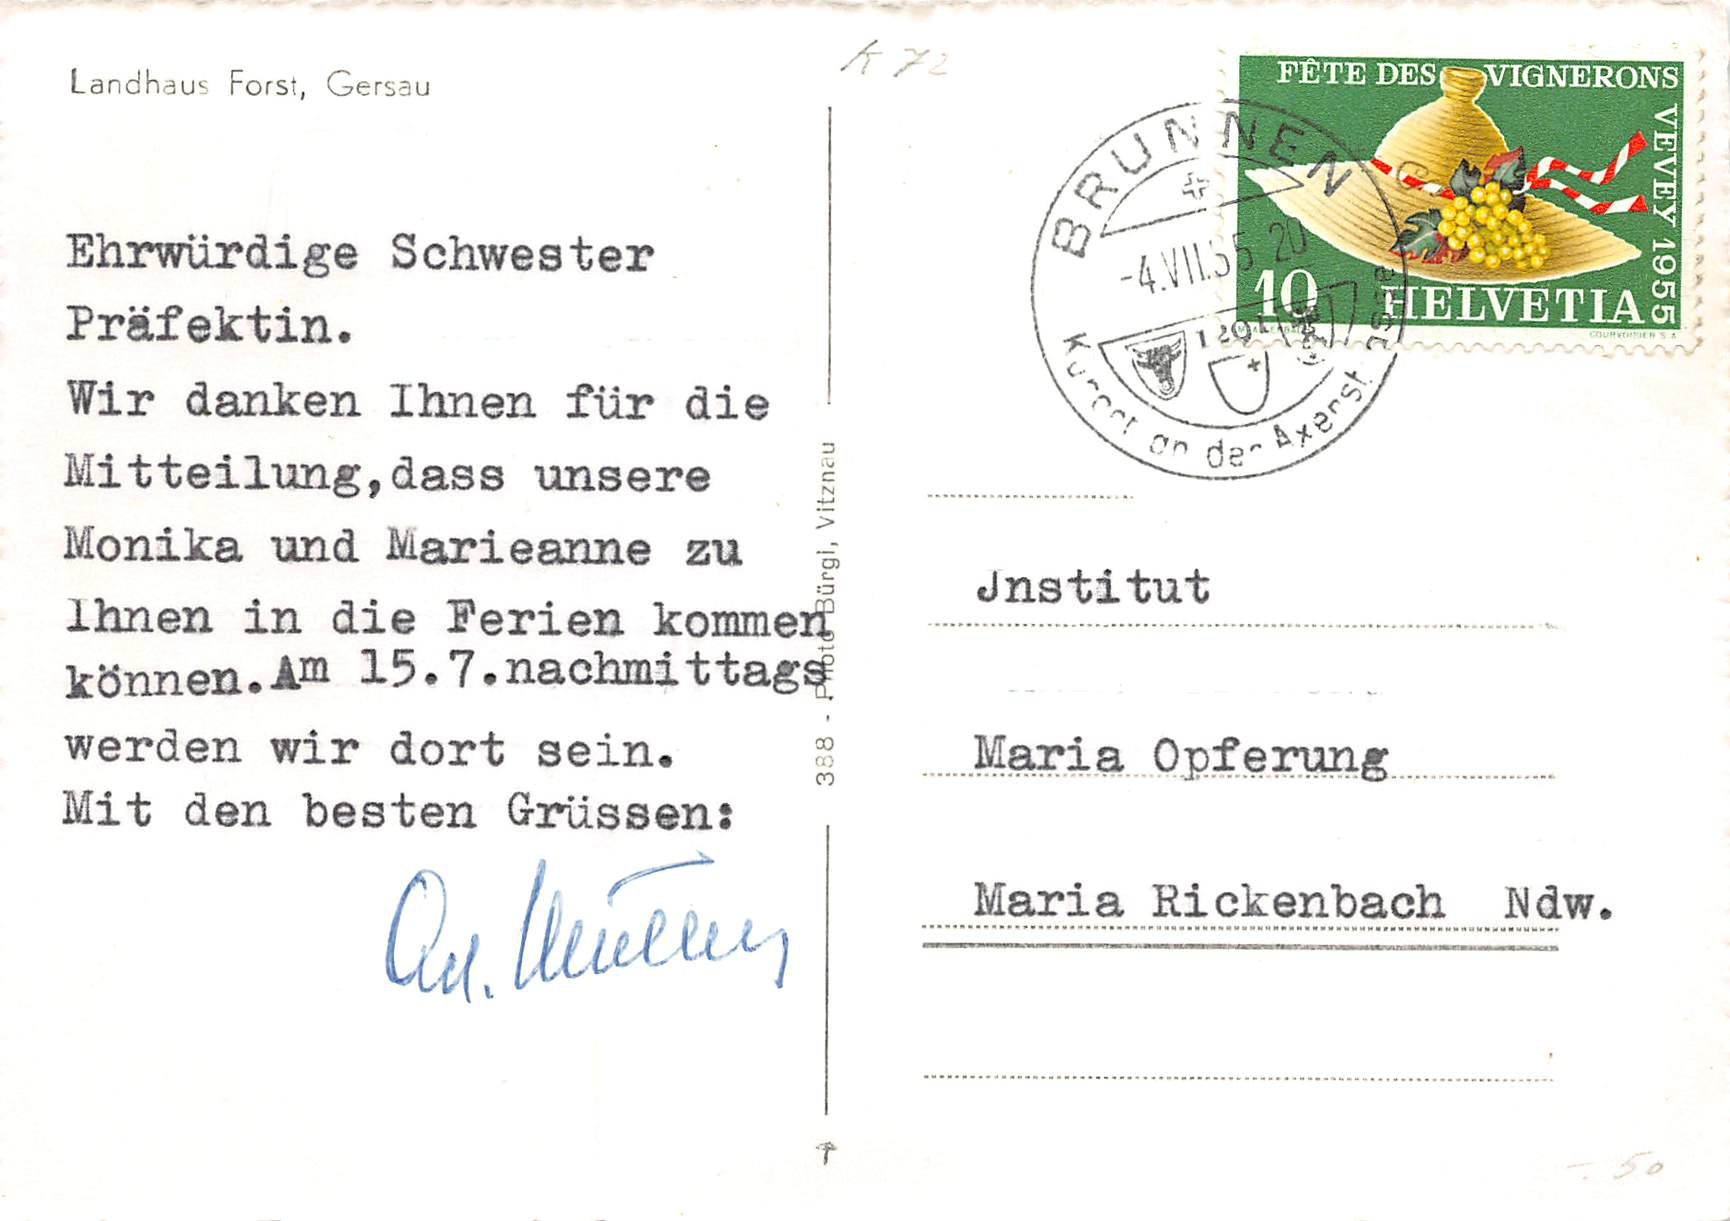 Landhaus Forst, Gersau
K 72
Ehrwürdige Schwester
Präfektin.
Wir danken Ihnen für die
Mitteilung,dass unsere
Monika und Marieanne zu
Ihnen in die Ferien kommen
können.Am 15.7.nachmittags
werden wir dort sein.
Mit den besten Grüssen:
388 - Photo Bürgi, Vitznau
FÊTE DES VIGNERONS
VEVEY 1955
10 HELVETIA
COURVOISIER S.A.
BRUNNEN
-4.VII.55 20
1291
Kurort an der Axenstrasse
Jnstitut
Maria Opferung
Maria Rickenbach Ndw.
-.50